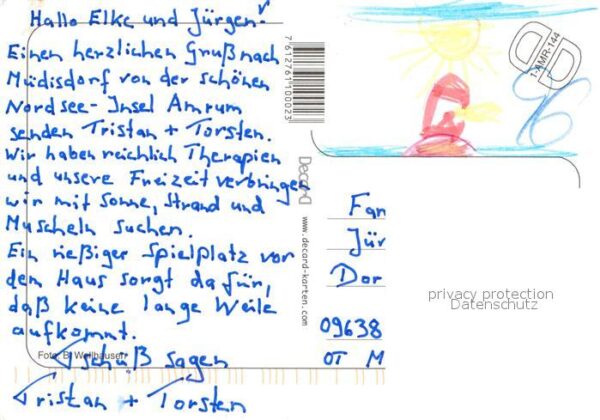 Hallo Elke und Jürgen!
Einen herzlichen Gruß nach
Müdisdorf von der schönen
Nordsee-Insel Amrum
senden Tristan + Torsten.
Wir haben reichlich Therapien
und unsere Freizeit verbringen
wir mit Sonne, Strand und
Muscheln suchen.
Ein rießiger Spielplatz vor
dem Haus sorgt dafür,
daß keine lange Weile
aufkommt.
Tschüß sagen
Tristan + Torsten
Foto: B. Wellhausen
7 612761 100023
Decard
www.decard-karten.com
1-AMR-144
Fam
Jür
Dor
09638
OT M
privacy protection
Datenschutz